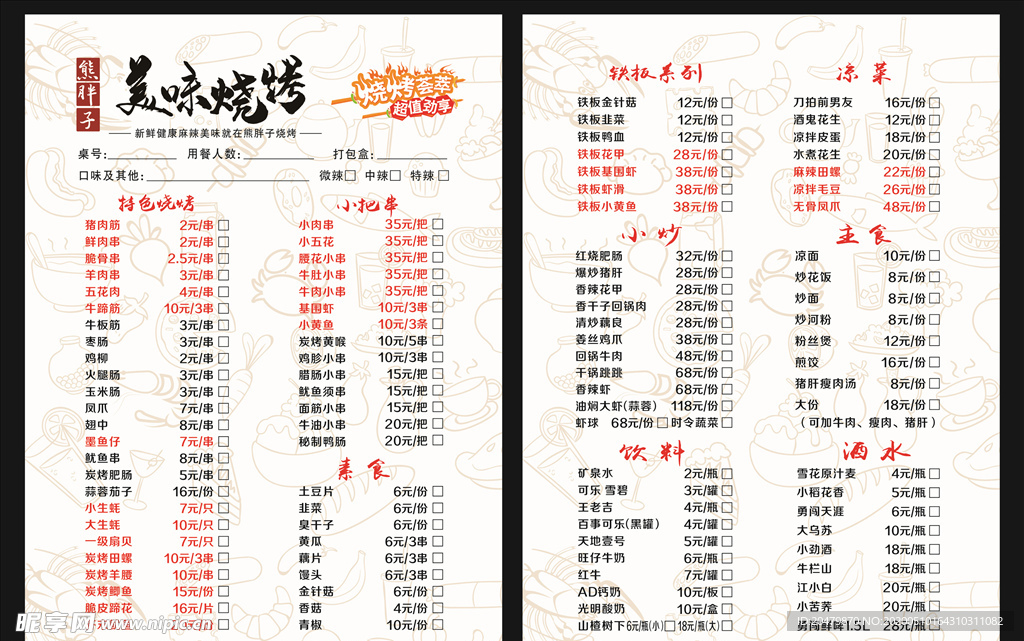 熊胖子
美味烧烤
烧烤荟萃
超值劲享
新鲜健康麻辣美味就在熊胖子烧烤
桌号: 用餐人数: 打包盒:
口味及其他: 微辣 中辣 特辣
特色烧烤
猪肉筋 2元/串
鲜肉串 2元/串
脆骨串 2.5元/串
羊肉串 3元/串
五花肉 4元/串
牛蹄筋 10元/3串
牛板筋 3元/串
枣肠 3元/串
鸡柳 2元/串
火腿肠 3元/串
玉米肠 3元/串
凤爪 7元/串
翅中 8元/串
墨鱼仔 7元/串
鱿鱼串 8元/串
炭烤肥肠 5元/串
蒜蓉茄子 16元/份
小生蚝 7元/只
大生蚝 10元/只
一级扇贝 7元/只
炭烤田螺 10元/3串
炭烤羊腰 10元/串
炭烤鲫鱼 15元/份
脆皮蹄花 16元/片
小把串
小肉串 35元/把
小五花 35元/把
腰花小串 35元/把
牛肚小串 35元/把
牛肉小串 35元/把
基围虾 10元/3串
小黄鱼 10元/3条
炭烤黄喉 10元/5串
鸡胗小串 10元/3串
腊肠小串 15元/把
鱿鱼须串 15元/把
面筋小串 15元/把
牛油小串 20元/把
秘制鸭肠 20元/把
素食
土豆片 6元/份
韭菜 6元/份
臭干子 6元/份
黄瓜 6元/3串
藕片 6元/3串
馒头 6元/3串
金针菇 6元/份
香菇 4元/份
青椒 10元/份
铁板系列
铁板金针菇 12元/份
铁板韭菜 12元/份
铁板鸭血 12元/份
铁板花甲 28元/份
铁板基围虾 38元/份
铁板虾滑 38元/份
铁板小黄鱼 38元/份
小炒
红烧肥肠 32元/份
爆炒猪肝 28元/份
香辣花甲 28元/份
香干子回锅肉 28元/份
清炒藕良 28元/份
姜丝鸡爪 38元/份
回锅牛肉 48元/份
干锅跳跳 68元/份
香辣虾 68元/份
油焖大虾(蒜蓉) 118元/份
虾球 68元/份 时令蔬菜
饮料
矿泉水 2元/瓶
可乐 雪碧 3元/罐
王老吉 4元/瓶
百事可乐(黑罐) 4元/罐
天地壹号 5元/罐
旺仔牛奶 6元/瓶
红牛 7元/罐
AD钙奶 10元/板
光明酸奶 10元/盒
山楂树下 6元/瓶(小) 18元/瓶(大)
凉菜
刀拍前男友 16元/份
酒鬼花生 12元/份
凉拌皮蛋 18元/份
水煮花生 20元/份
麻辣田螺 22元/份
凉拌毛豆 26元/份
无骨凤爪 48元/份
主食
凉面 10元/份
炒花饭 8元/份
炒面 8元/份
炒河粉 8元/份
粉丝煲 12元/份
煎饺 16元/份
猪肝瘦肉汤 8元/份
大份 18元/份
(可加牛肉、瘦肉、猪肝)
酒水
雪花原汁麦 4元/瓶
小稻花香 5元/瓶
勇闯天涯 6元/瓶
大乌苏 10元/瓶
小劲酒 18元/瓶
牛栏山 18元/瓶
江小白 20元/瓶
小苦荞 20元/瓶
勇闯鲜味1.5L 28元/瓶
昵享网 www.nipic.cn